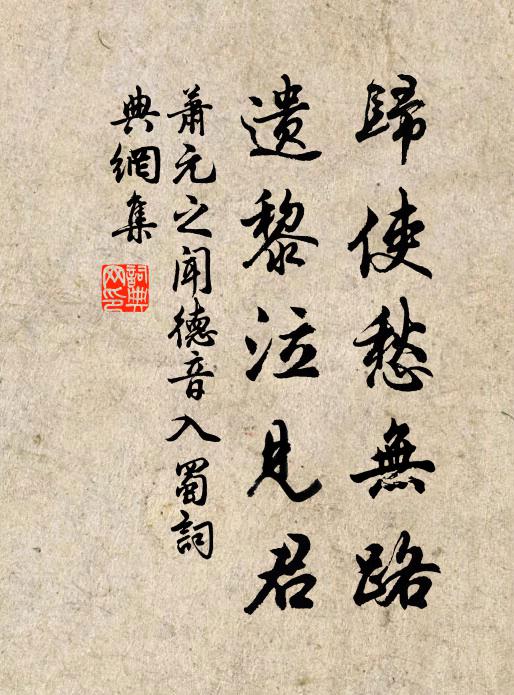 歸使愁無路
遺黎泣見君
蕭元之聞德音入蜀詞
典網集
詞典網印